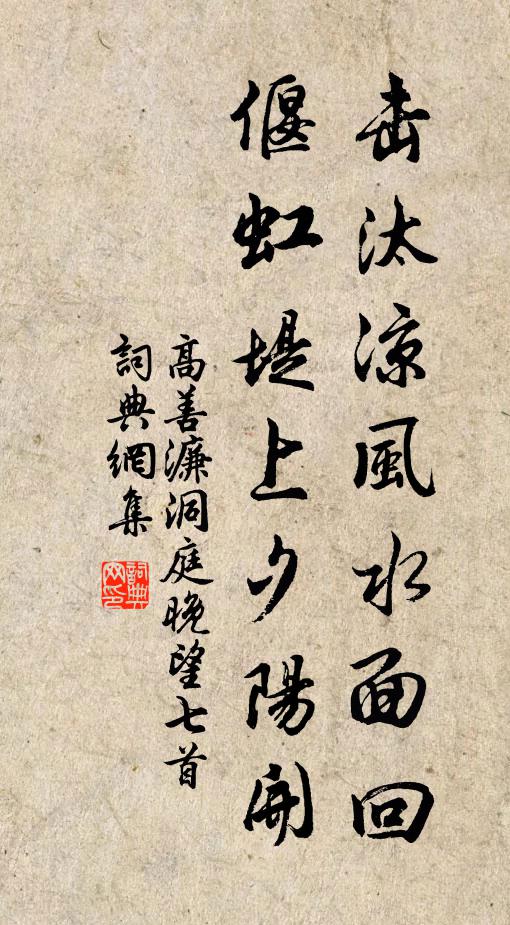 击汰凉風水面回
偃虹堤上夕陽開
高善濂洞庭晚望七首
詞典網集
詞典
网印